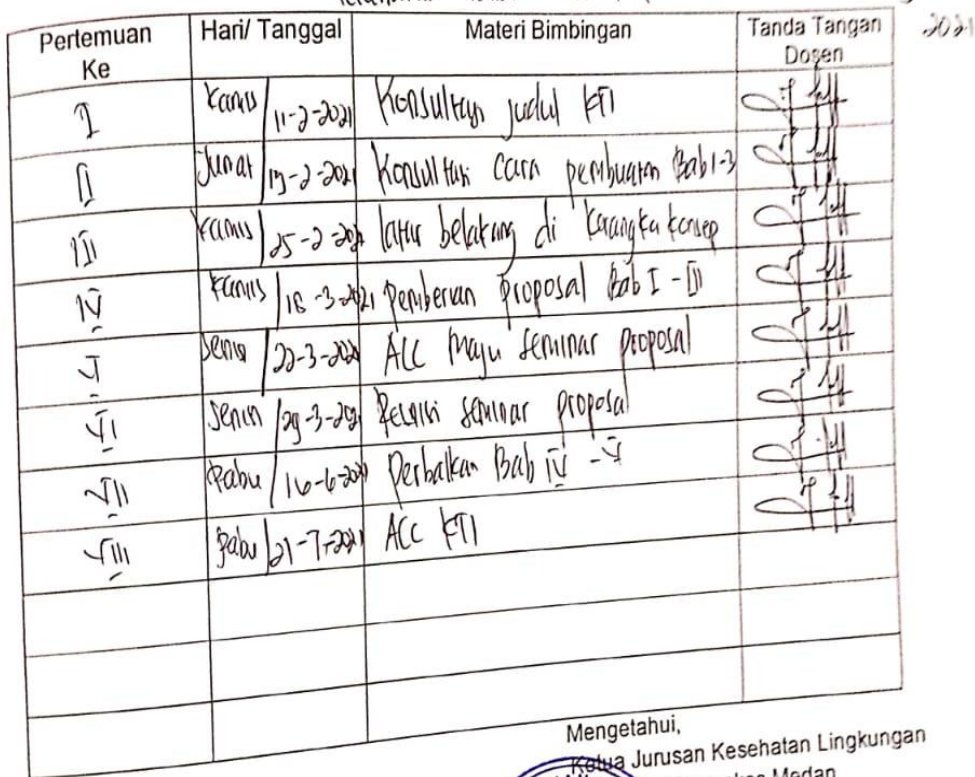 2021
Pertemuan Ke Hari/ Tanggal Materi Bimbingan Tanda Tangan Dosen
I Kamis / 11-2-2021 Konsultasi judul KTI
II Jumat / 19-2-2021 Konsultasi Cara pembuatan Bab 1-3
III Kamis / 25-2-2021 latar belakang di Kerangka konsep
IV Kamis / 18-3-2021 Pemberian Proposal Bab I - III
V Senin / 22-3-2021 ACC Maju seminar proposal
VI Senin / 29-3-2021 Revisi seminar proposal
VII Rabu / 16-6-2021 Perbaikan Bab IV - V
VIII Rabu / 21-7-2021 ACC KTI
Mengetahui,
Ketua Jurusan Kesehatan Lingkungan
Medan